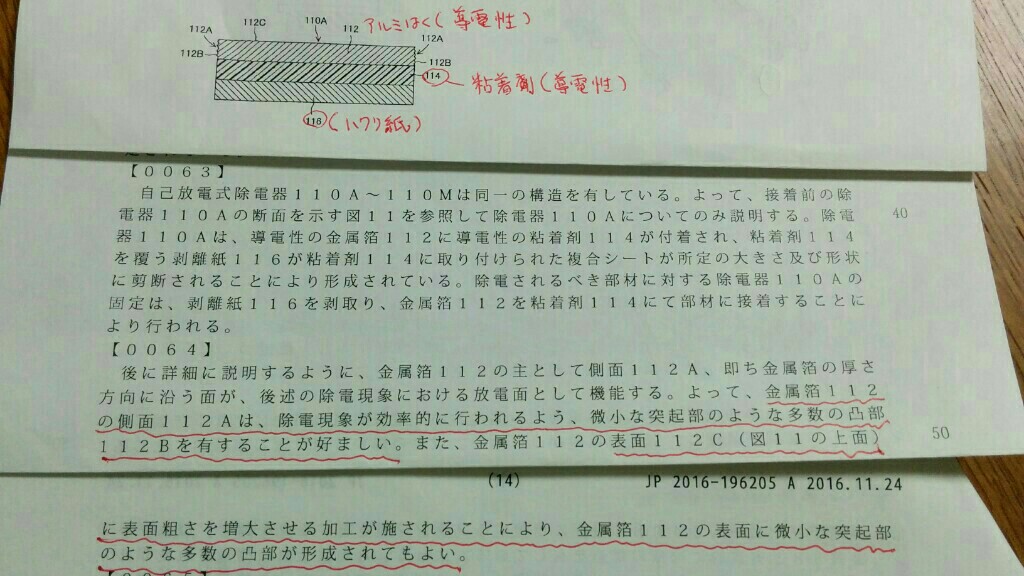 112C
110A
112
アルミはく(導電性)
112A
112A
112B
112B
114
粘着剤(導電性)
116
(ハクリ紙)
【0063】
自己放電式除電器110A～110Mは同一の構造を有している。よって、接着前の除
電器110Aの断面を示す図11を参照して除電器110Aについてのみ説明する。除電
40
器110Aは、導電性の金属箔112に導電性の粘着剤114が付着され、粘着剤114
を覆う剥離紙116が粘着剤114に取り付けられた複合シートが所定の大きさ及び形状
に剪断されることにより形成されている。除電されるべき部材に対する除電器110Aの
固定は、剥離紙116を剥取り、金属箔112を粘着剤114にて部材に接着することに
より行われる。
【0064】
後に詳細に説明するように、金属箔112の主として側面112A、即ち金属箔の厚さ
方向に沿う面が、後述の除電現象における放電面として機能する。よって、金属箔112
の側面112Aは、除電現象が効率的に行われるよう、微小な突起部のような多数の凸部
112Bを有することが好ましい。また、金属箔112の表面112C(図11の上面)
50
(14)
JP 2016-196205 A 2016.11.24
に表面粗さを増大させる加工が施されることにより、金属箔112の表面に微小な突起部
のような多数の凸部が形成されてもよい。